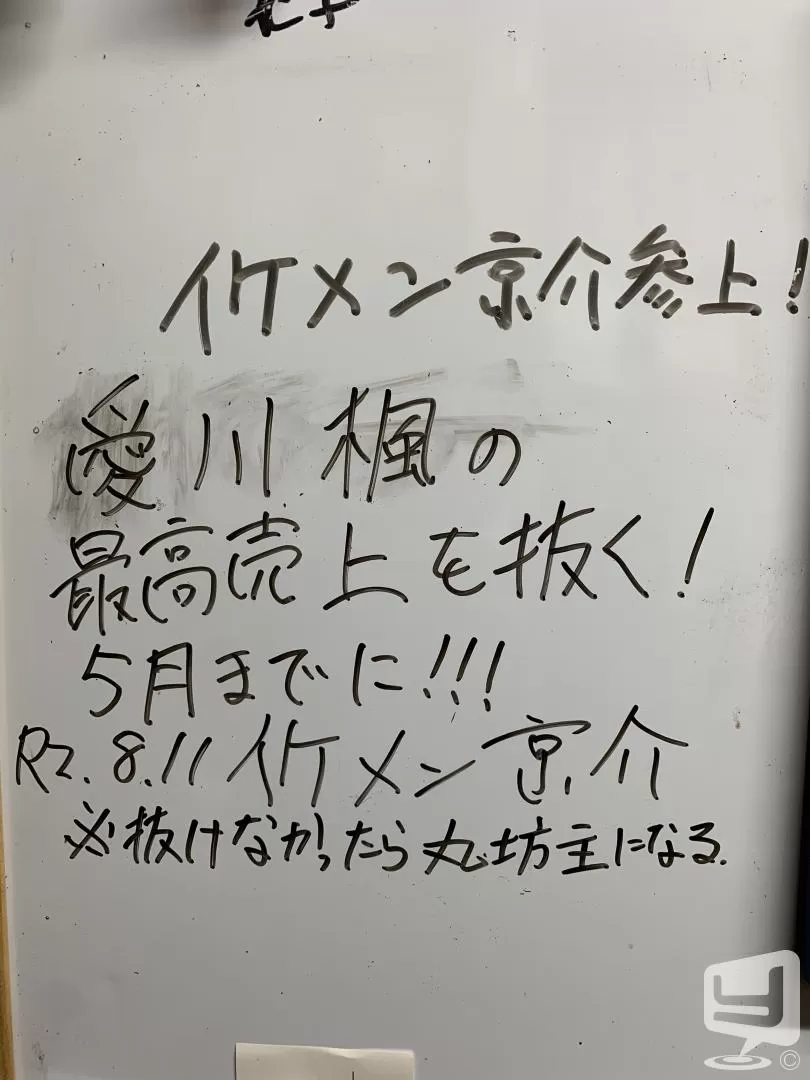 イケメン京介参上!
愛川楓の
最高売上を抜く!
5月までに!!!
R2.8.11イケメン京介
※抜けなかったら丸坊主になる.